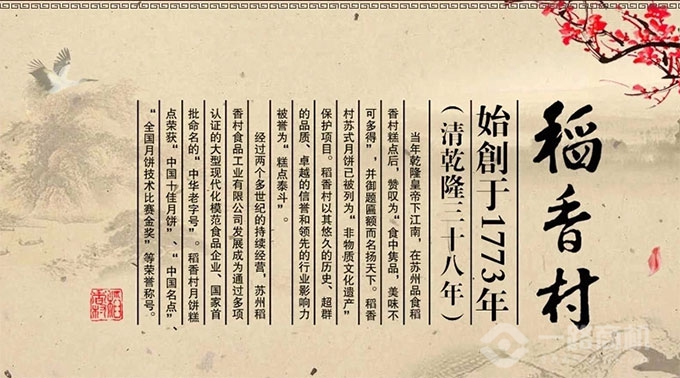 稻香村
始創于1773年
（清乾隆三十八年）
当年乾隆皇帝下江南，在苏州品食稻
香村糕点后，赞叹为“食中隽品，美味不
可多得”，并御题匾额而名扬天下。稻香
村苏式月饼已被列为“非物质文化遗产”
保护项目。稻香村以其悠久的历史、超群
的品质、卓越的信誉和领先的行业影响力
被誉为“糕点泰斗”。
经过两个多世纪的持续经营，苏州稻
香村食品工业有限公司发展成为通过多项
认证的大型现代化模范食品企业、国家首
批命名的“中华老字号”。稻香村月饼糕
点荣获“中国十佳月饼”、“中国名点”、
“全国月饼技术比赛金奖”等荣誉称号。